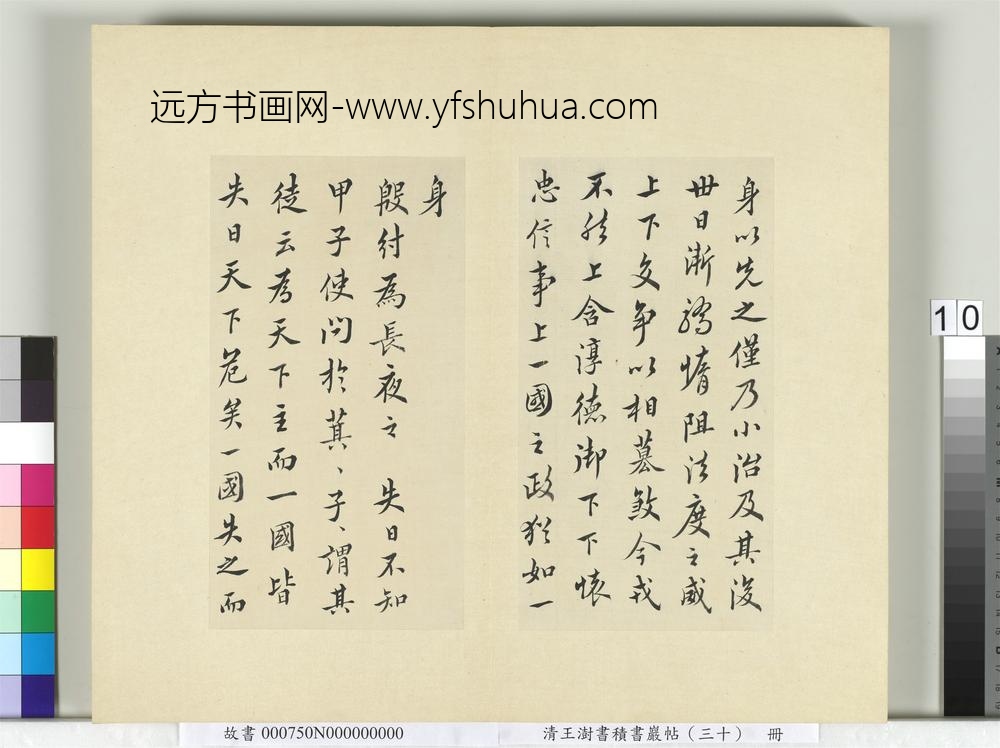 远方书画网-www.yfshuhua.com
身以先之僅乃小治及其後
世日漸驕惰阻法度之威
上下交爭以相墓煞今戎
不然上含淳德御下下懷
忠信事上一國之政猶如一
身
殷紂為長夜之 失日不知
甲子使問於萁〻子〻謂其
徒云為天下主而一國皆
失日天下危矣一國失之而
10
故書 000750N000000000
清王澍書積書巖帖（三十） 冊